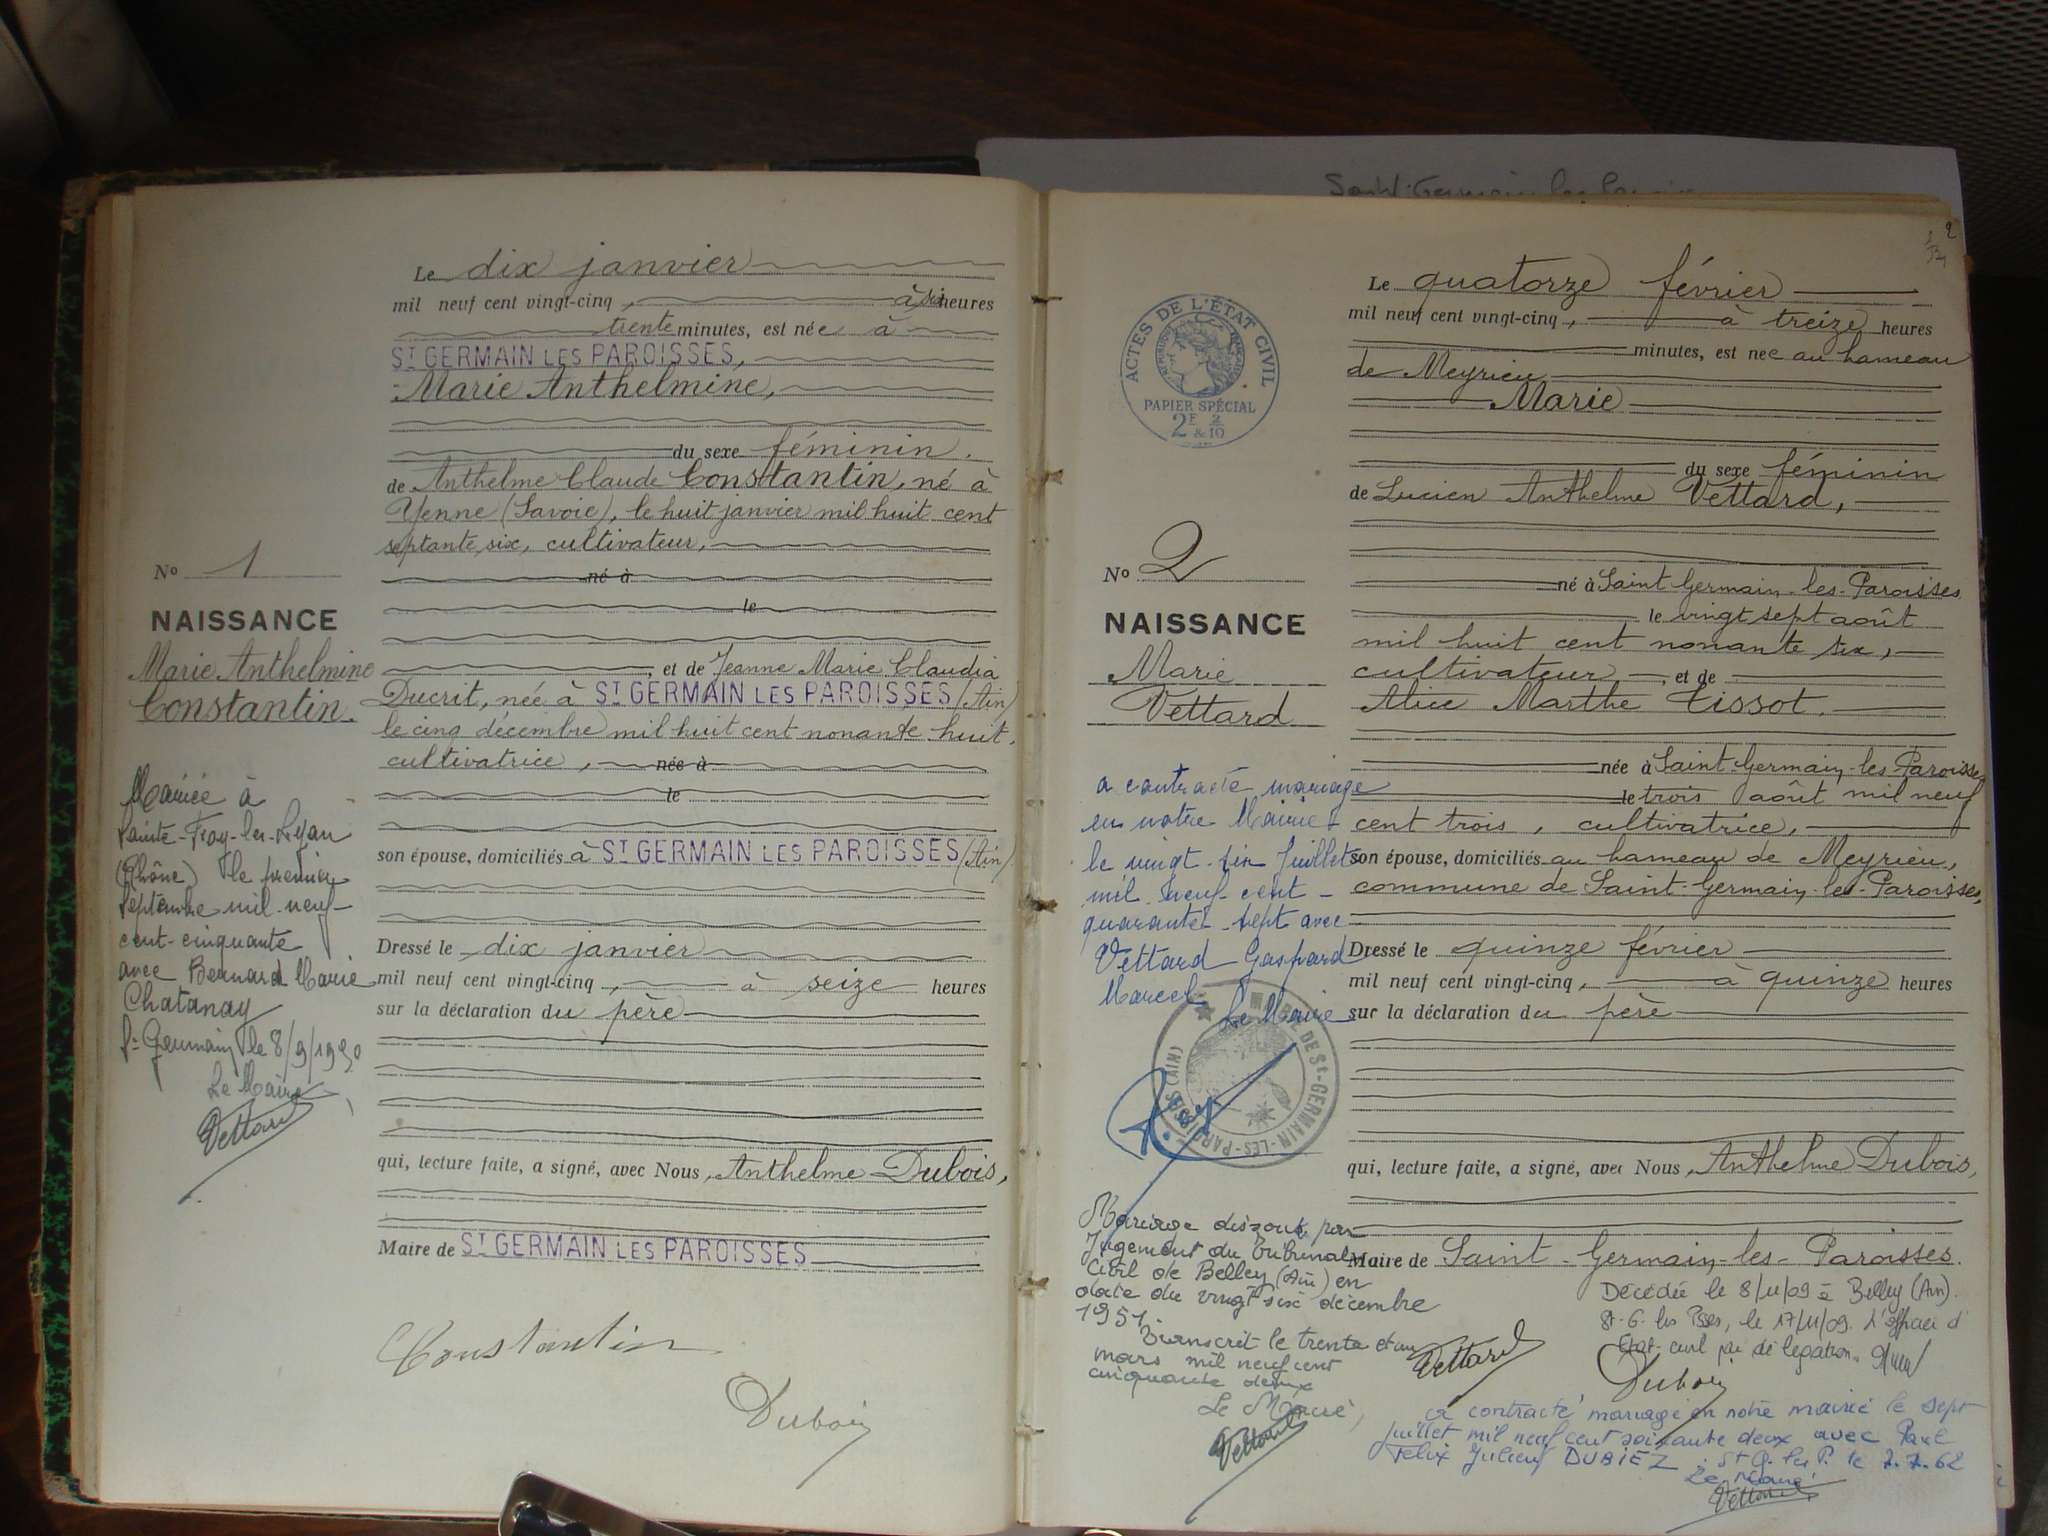 Saint-Germain les
Le dix janvier
mil neuf cent vingt-cinq, à six heures
trente minutes, est née à
ST GERMAIN LES PAROISSES,
Marie Anthelmine,
du sexe féminin.
de Anthelme Claude Constantin, né à
Yenne (Savoie), le huit janvier mil huit cent
septante six, cultivateur,
né à
le
et de Jeanne Marie Claudia
Ducrit, née à ST GERMAIN LES PAROISSES (Ain)
le cinq décembre mil huit cent nonante huit,
cultivatrice, née à
le
son épouse, domiciliés à ST GERMAIN LES PAROISSES (Ain)
Dressé le dix janvier
mil neuf cent vingt-cinq, à seize heures
sur la déclaration du père
qui, lecture faite, a signé, avec Nous, Anthelme Dubois,
Maire de ST GERMAIN LES PAROISSES
Constantin
Dubois
No 1
NAISSANCE
Marie Anthelmine
Constantin.
Mariée à
Sainte-Foy-les-Lyon
(Rhône) le premier
septembre mil-neuf-
cent-cinquante
avec Bernard Marie
Chatanay
St Germain le 8/9/1950
Le Maire
Vettard
2
ACTES DE L'ÉTAT CIVIL
PAPIER SPÉCIAL
2F 2
& 10
Le quatorze février
mil neuf cent vingt-cinq, à treize heures
minutes, est née au hameau
de Meyrieu
Marie
du sexe féminin
de Lucien Anthelme Vettard,
né à Saint Germain-les-Paroisses
le vingt sept août
mil huit cent nonante six,
cultivateur, et de
Alice Marthe Tissot.
née à Saint-Germain-les-Paroisses
le trois août mil neuf
cent trois, cultivatrice,
son épouse, domiciliés au hameau de Meyrieu,
commune de Saint-Germain-les-Paroisses,
Dressé le quinze février
mil neuf cent vingt-cinq, à quinze heures
sur la déclaration du père
qui, lecture faite, a signé, avec Nous, Anthelme Dubois,
Maire de Saint-Germain-les-Paroisses.
Vettard
Dubois
No 2
NAISSANCE
Marie
Vettard
a contracté mariage
en notre Mairie
le vingt-six Juillet
mil neuf-cent-
quarante-sept avec
Vettard Gaspard
Marcel
Le Maire
DE St-GERMAIN-LES-PAROISSES (AIN)
Mariage dissout par
Jugement du Tribunal
Civil de Belley (Ain) en
date du vingt six décembre
1951
Transcrit le trente et un
mars mil neuf cent
cinquante deux
Le Maire,
Vettard
Décédée le 8/11/09 à Belley (Ain).
St-G. les Psses, le 17/11/09. L'officier d'
Etat-civil par délégation.
a contracté mariage en notre mairie le sept
juillet mil neuf cent soixante deux avec Paul
Felix Julien DUBIEZ. St G. les P. le 7.7.62
Le Maire
Vettard